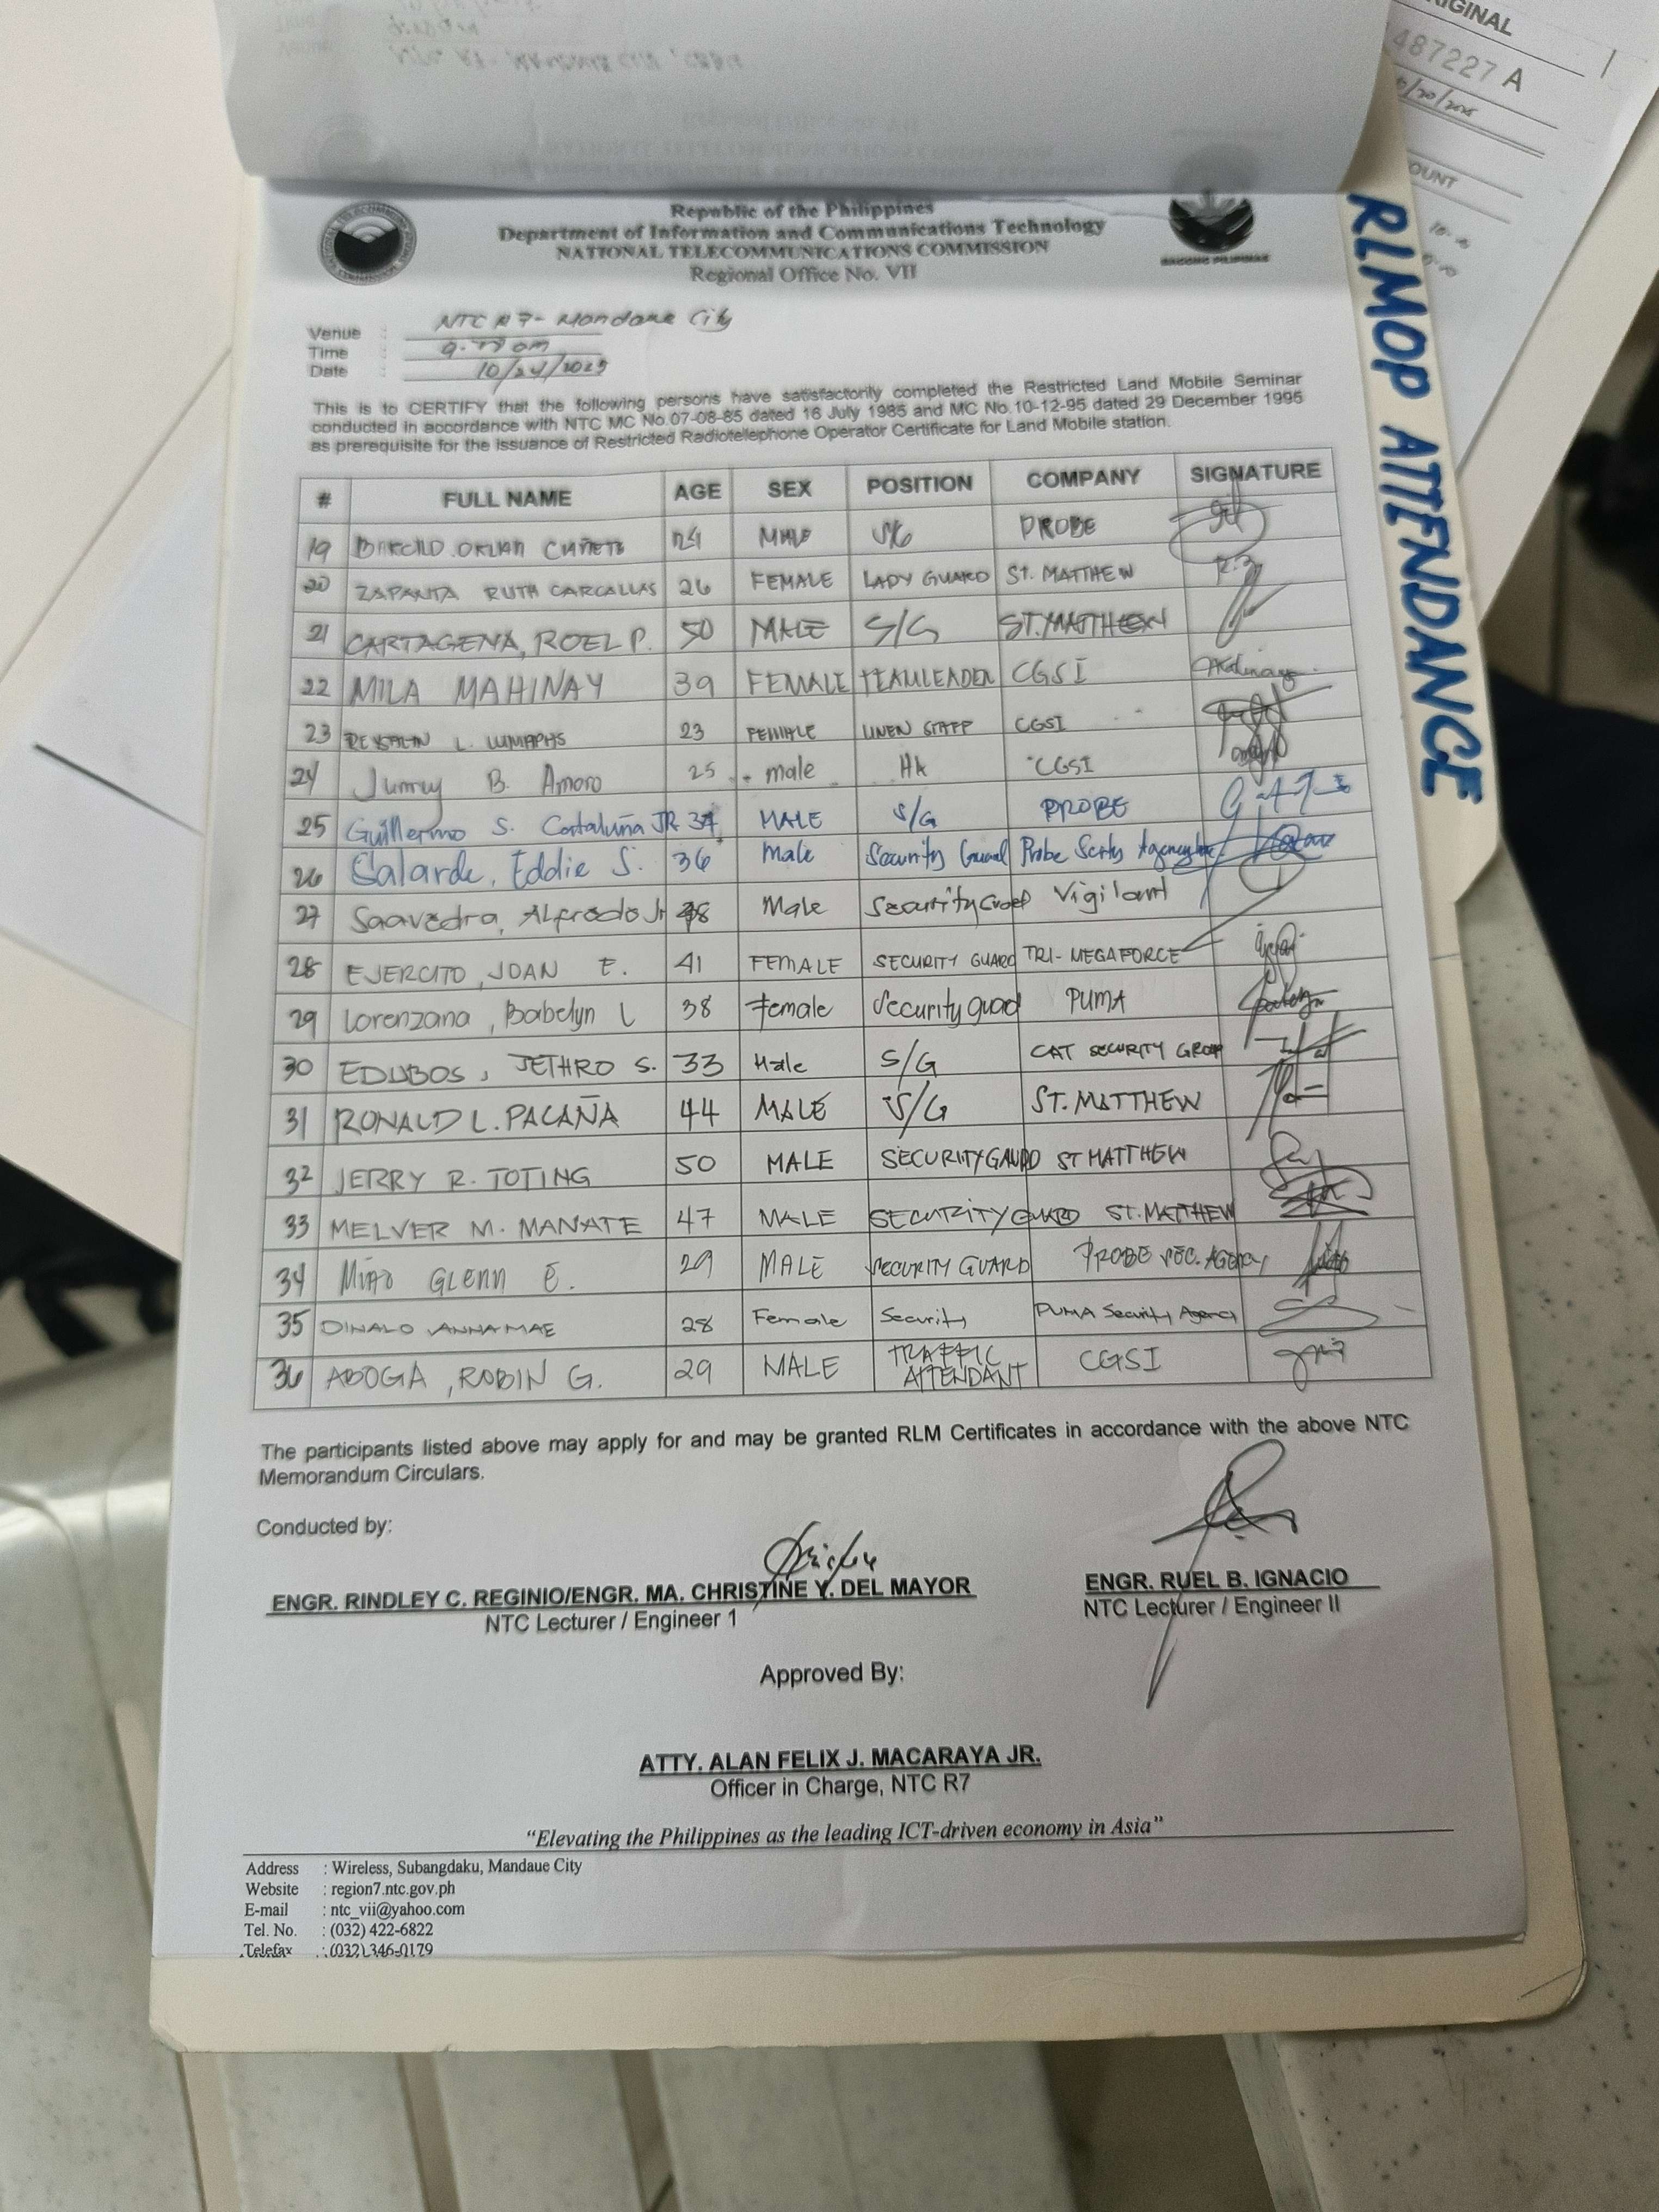 ORIGINAL
487227 A
Republic of the Philippines
Department of Information and Communications Technology
NATIONAL TELECOMMUNICATIONS COMMISSION
Regional Office No. VII
BAGONG PILIPINAS
RLMOP ATTENDANCE
Venue : NTC R7- Mandaue City
Time :
Date : 10/24/2025
This is to CERTIFY that the following persons have satisfactorily completed the Restricted Land Mobile Seminar
conducted in accordance with NTC MC No.07-08-85 dated 16 July 1985 and MC No.10-12-95 dated 29 December 1995
as prerequisite for the issuance of Restricted Radiotelephone Operator Certificate for Land Mobile station.
# FULL NAME AGE SEX POSITION COMPANY SIGNATURE
19 MALE S/G PROBE
20 ZAPANTA RUTH CARCALLAS 26 FEMALE LADY GUARD ST. MATTHEW
21 CARTAGENA, ROEL P. 50 MALE S/G ST. MATTHEW
22 MILA MAHINAY 39 FEMALE TEAMLEADER CGSI
23 L. 23 FEMALE LINEN STAFF CGSI
24 B. Amoro 25 male HK CGSI
25 Guillermo S. Cataluña JR 37 MALE S/G PROBE
26 Salarde, Eddie S. 36 Male Security Guard Probe Scrty Agency
27 Saavedra, Alfredo Jr 48 Male Security Guard Vigilant
28 EJERCITO, JOAN E. 41 FEMALE SECURITY GUARD TRI-MEGAFORCE
29 Lorenzana, Babelyn L 38 Female Security guad PUMA
30 EDUBOS, JETHRO S. 33 Male S/G CAT SECURITY GROUP
31 RONALD L. PACAÑA 44 MALE S/G ST. MATTHEW
32 JERRY R. TOTING 50 MALE SECURITY GAURD ST MATTHEW
33 MELVER M. MANATE 47 MALE SECURITY GUARD ST. MATTHEW
34 GLENN E. 29 MALE SECURITY GUARD PROBE SEC. AGENCY
35 DINALO ANNA MAE 28 Female Security PUMA Security Agency
36 ABOGA, ROBIN G. 29 MALE TRAFFIC ATTENDANT CGSI
The participants listed above may apply for and may be granted RLM Certificates in accordance with the above NTC
Memorandum Circulars.
Conducted by:
ENGR. RINDLEY C. REGINIO/ENGR. MA. CHRISTINE Y. DEL MAYOR
NTC Lecturer / Engineer 1
ENGR. RUEL B. IGNACIO
NTC Lecturer / Engineer II
Approved By:
ATTY. ALAN FELIX J. MACARAYA JR.
Officer in Charge, NTC R7
“Elevating the Philippines as the leading ICT-driven economy in Asia”
Address : Wireless, Subangdaku, Mandaue City
Website : region7.ntc.gov.ph
E-mail : ntc_vii@yahoo.com
Tel. No. : (032) 422-6822
Telefax : (032) 346-0179